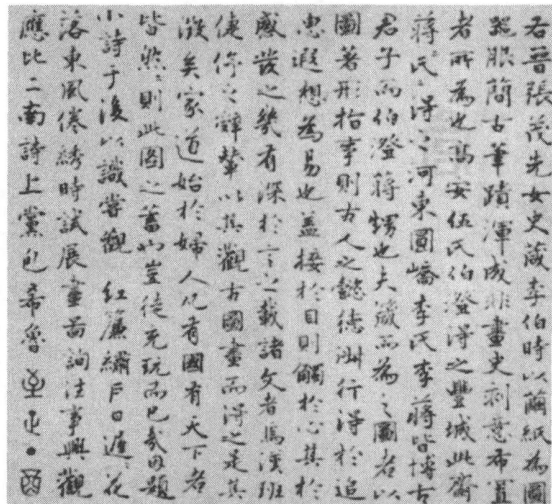 右晉張茂先女史箴李伯時以繭紙為圖
冠服簡古筆蹟渾成非畫史刻意布置
者所為也高安伍氏伯澄得之豐城此齋
蔣氏得之河東圖嶠李氏李蔣皆博古
君子而伯澄蔣甥也夫箴而為之圖者以
圖著形指事則古人之懿德淑行得於追
忠遐想為易也蓋接於目則觸於心其於
感發之幾有深於言之載諸文者焉漢班
倢伃之辭輦以其觀古圖畫而得之是其
矣家道始於婦人凡有國有天下者
皆然則此圖之蓄也豈徒充玩而已哉因題
小詩于後以識嘗觀 紅簾繡戶日遲〻花
落東風倦繡時試展畫啚詢往事興觀
應比二南詩上黨包希魯